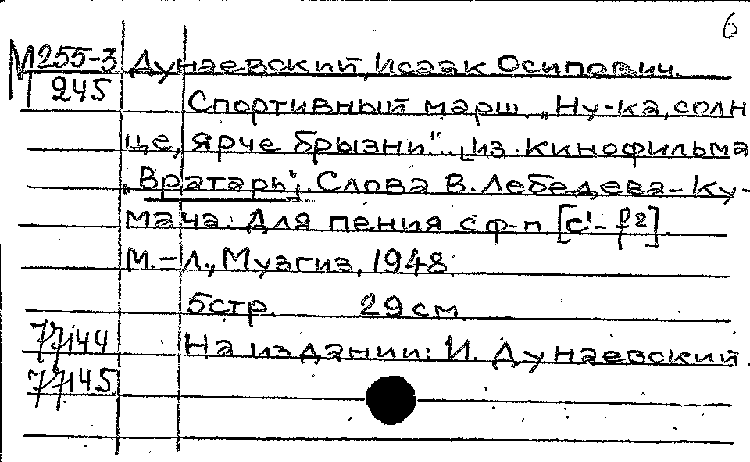 6
М 255-3 Дунаевский, Исаак Осипович.
245 Спортивный марш „Ну-ка, солн
це, ярче брызни". [из кинофильма
„Вратарь"; Слова В. Лебедева-Ку-
мача. Для пения с ф-п [c¹-f²].
М.-Л., Музгиз, 1948.
5 стр. 29 см.
77144 На издании: И. Дунаевский.
77145